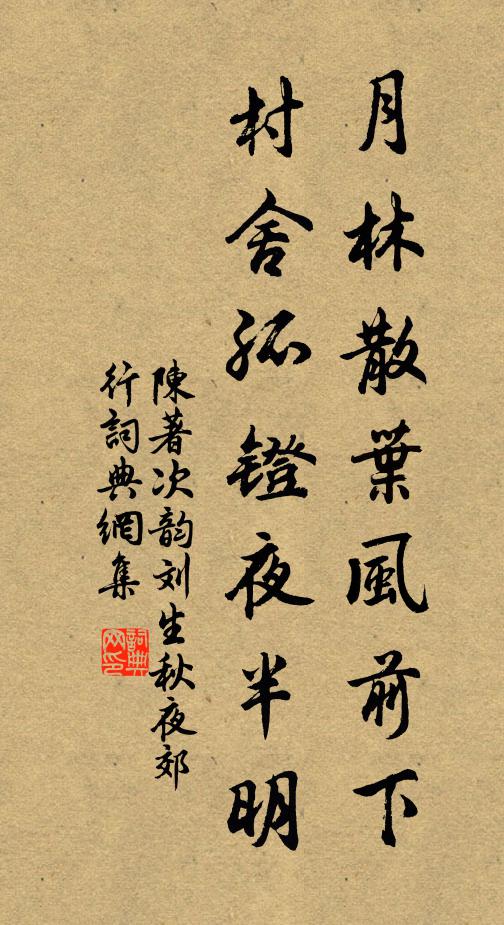 月林散葉風前下
村舍孤鐙夜半明
陳著次韵刘生秋夜郊
行詞典網集
詞典
网印